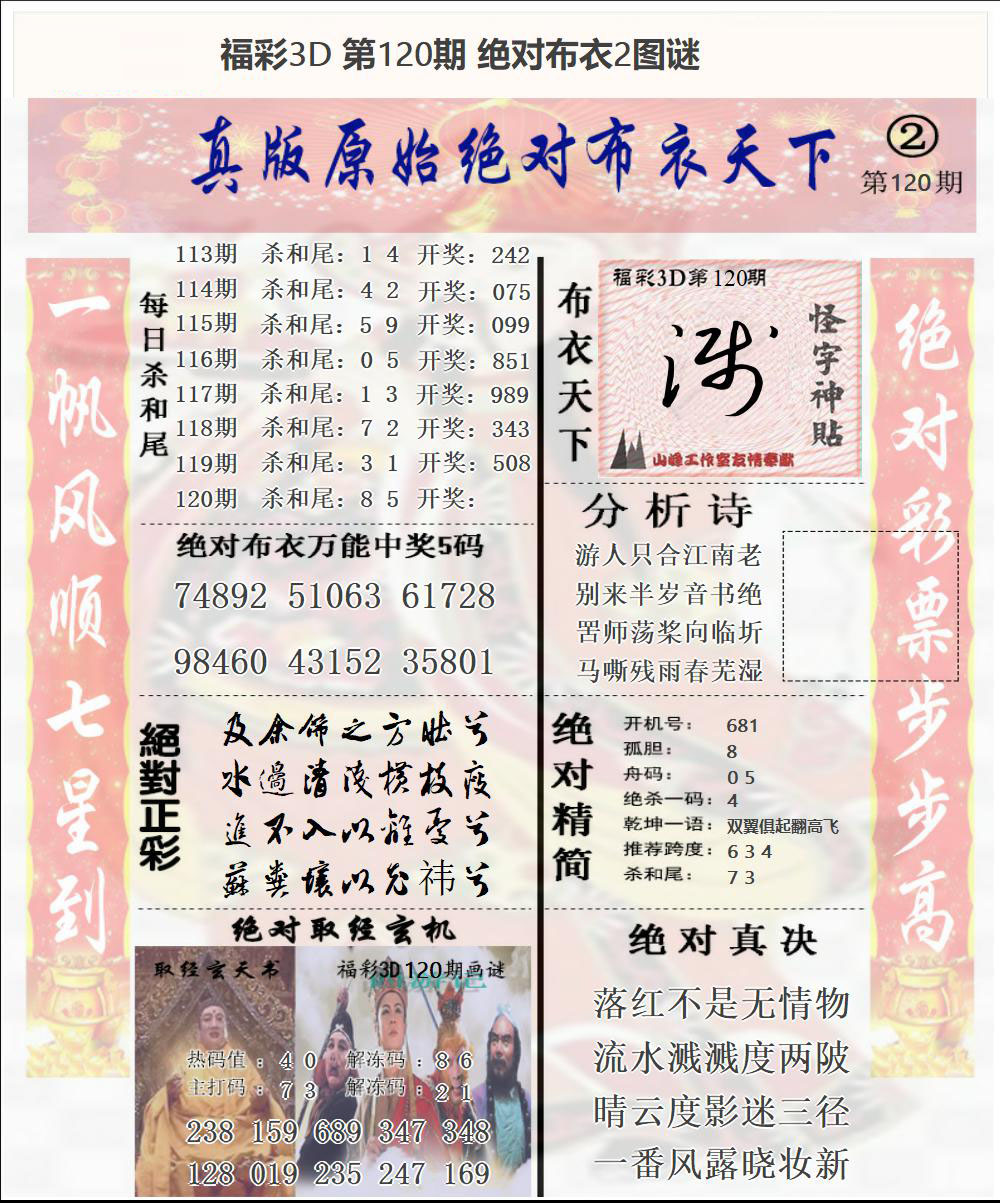 福彩3D 第120期 绝对布衣2图谜
真版原始绝对布衣天下
②
第120期
一帆风顺七星到
每日杀和尾
113期 杀和尾：1 4 开奖：242
114期 杀和尾：4 2 开奖：075
115期 杀和尾：5 9 开奖：099
116期 杀和尾：0 5 开奖：851
117期 杀和尾：1 3 开奖：989
118期 杀和尾：7 2 开奖：343
119期 杀和尾：3 1 开奖：508
120期 杀和尾：8 5 开奖：
绝对布衣万能中奖5码
74892 51063 61728
98460 43152 35801
絕對正彩
及余饰之方壮兮
水過清淺横枝瘦
進不入以離尤兮
蘇糞壤以充祎兮
绝对取经玄机
取经玄天书
福彩3D120期画谜
热码值：4 0 解冻码：8 6
主打码：7 3 解冻码：2 1
238 159 689 347 348
128 019 235 247 169
布衣天下
福彩3D第120期
怪字神貼
山峰工作室友情奉献
分析诗
游人只合江南老
别来半岁音书绝
罟师荡桨向临圻
马嘶残雨春芜湿
绝对精简
开机号：681
孤胆：8
舟码：0 5
绝杀一码：4
乾坤一语：双翼俱起翻高飞
推荐跨度：6 3 4
杀和尾：7 3
绝对真决
落红不是无情物
流水溅溅度两陂
晴云度影迷三径
一番风露晓妆新
绝对彩票步步高